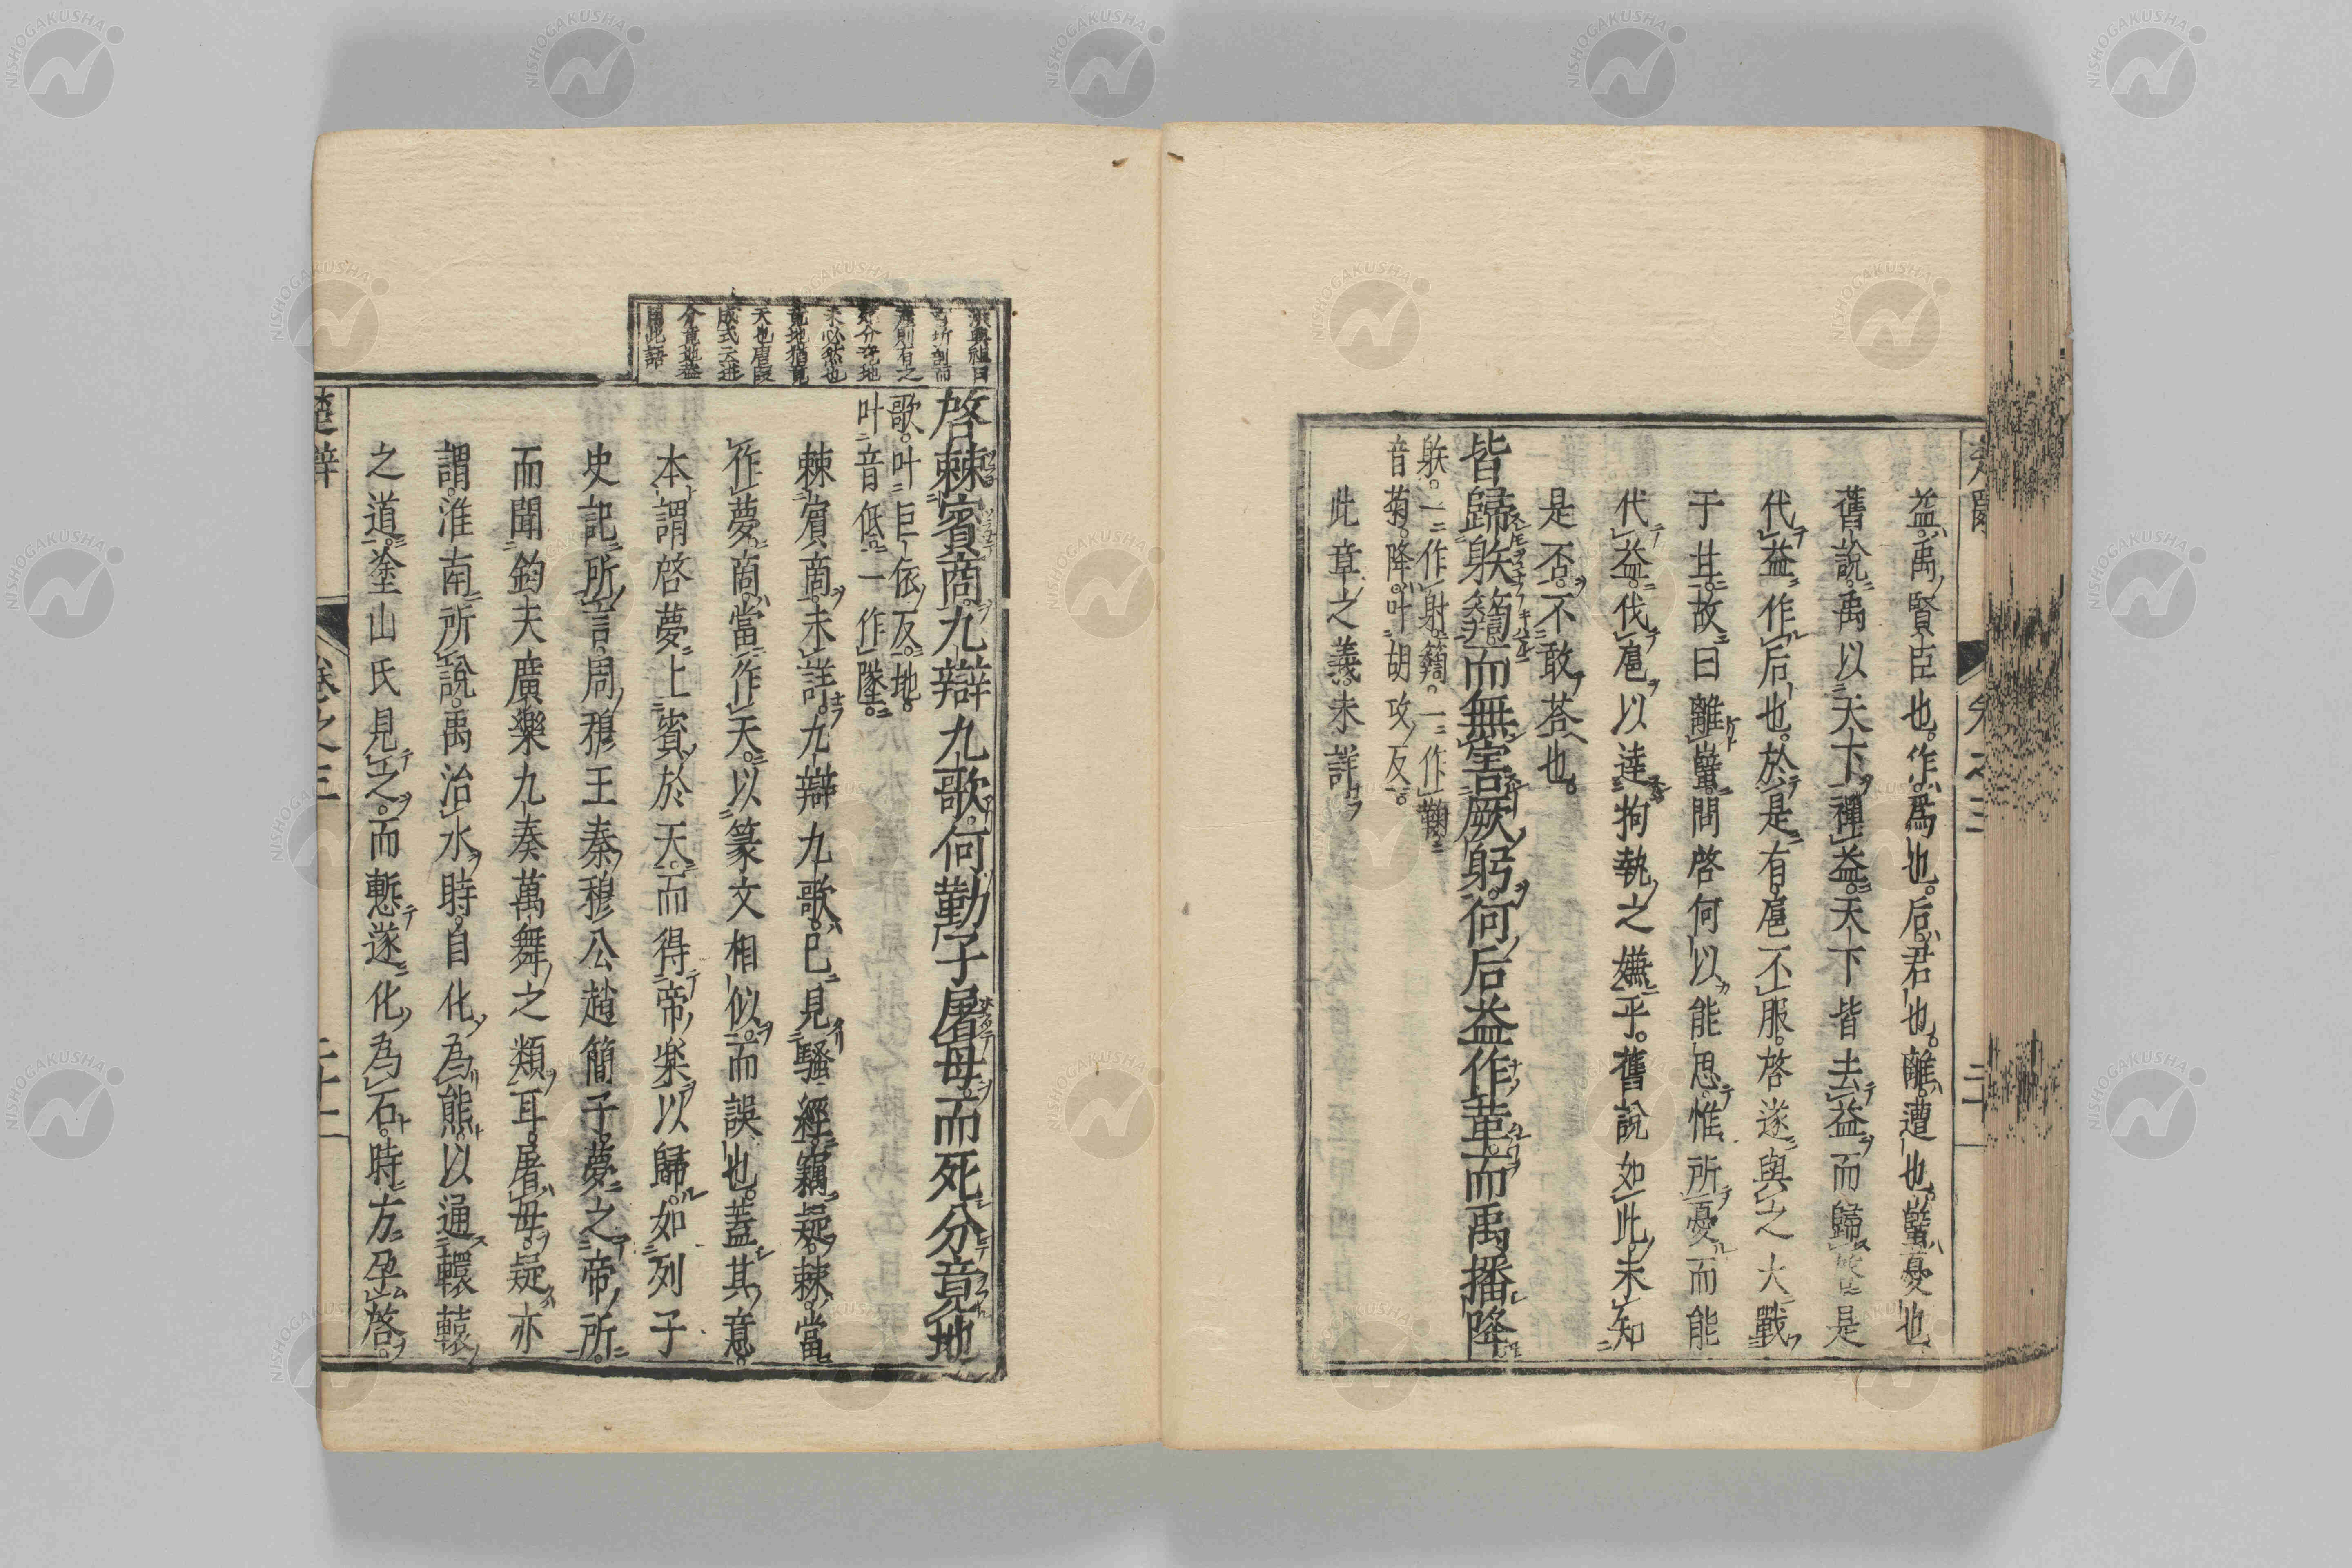 益禹賢臣也。作爲也。后君也。離遭也。蠥憂也
舊說禹以天下禪益。天下皆去益而歸啓是
代益作后也。於是有扈不服。啓遂與之大戰
于甘。故曰離蠥。問啓何以能思惟所憂而能
代益伐扈以達拘執之嫌乎。舊說如此。未知
是否。不敢荅也。
皆歸䠶䉤而無害厥躬。何后益作革而禹播降
䠶。一作射。䉤。一作鞠。
音菊。降。叶胡攻反。
此章之義。未詳
洪興祖曰
則有之
分竟地
未必然也
竟地猶竟
天也唐段
成式云迸
分竟地蓋
用此語
啓棘賓商。九辯九歌。何勤子屠母。而死分竟地
歌。叶巨依反。地。
叶音低。一作墜。
棘賓商。未詳。九辯九歌。已見騷經。竊疑棘當
作夢。商當作天。以篆文相似。而誤也。蓋其意。
本謂啓夢上賓於天。而得帝樂以歸。如列子
史記所言。周穆王秦穆公趙簡子夢之帝所。
而聞鈞天廣樂九奏萬舞之類耳。屠母疑亦
謂淮南所說。禹治水時。自化爲熊。以通轘轅
之道。塗山氏見之。而慙遂化爲石。時方孕啓。
楚辭
卷之三